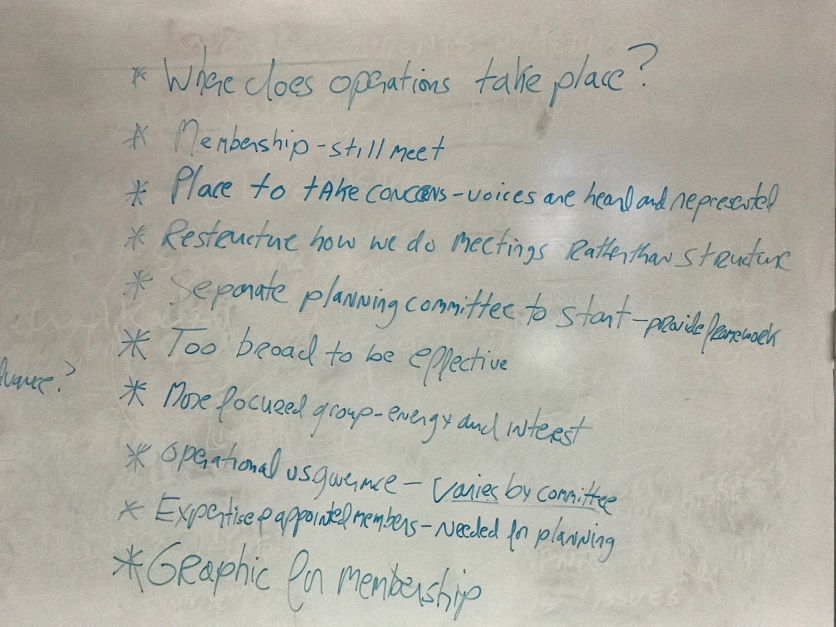 * Where does operations take place?
* Membership - still meet
* Place to take concerns - voices are heard and represented
* Restructure how we do meetings Rather than structure
* Separate planning committee to start - provide framework
* Too broad to be effective
* More focused group - energy and interest
* Operational vs governance - varies by committee
* Expertise & appointed members - needed for planning
* Graphic for membership